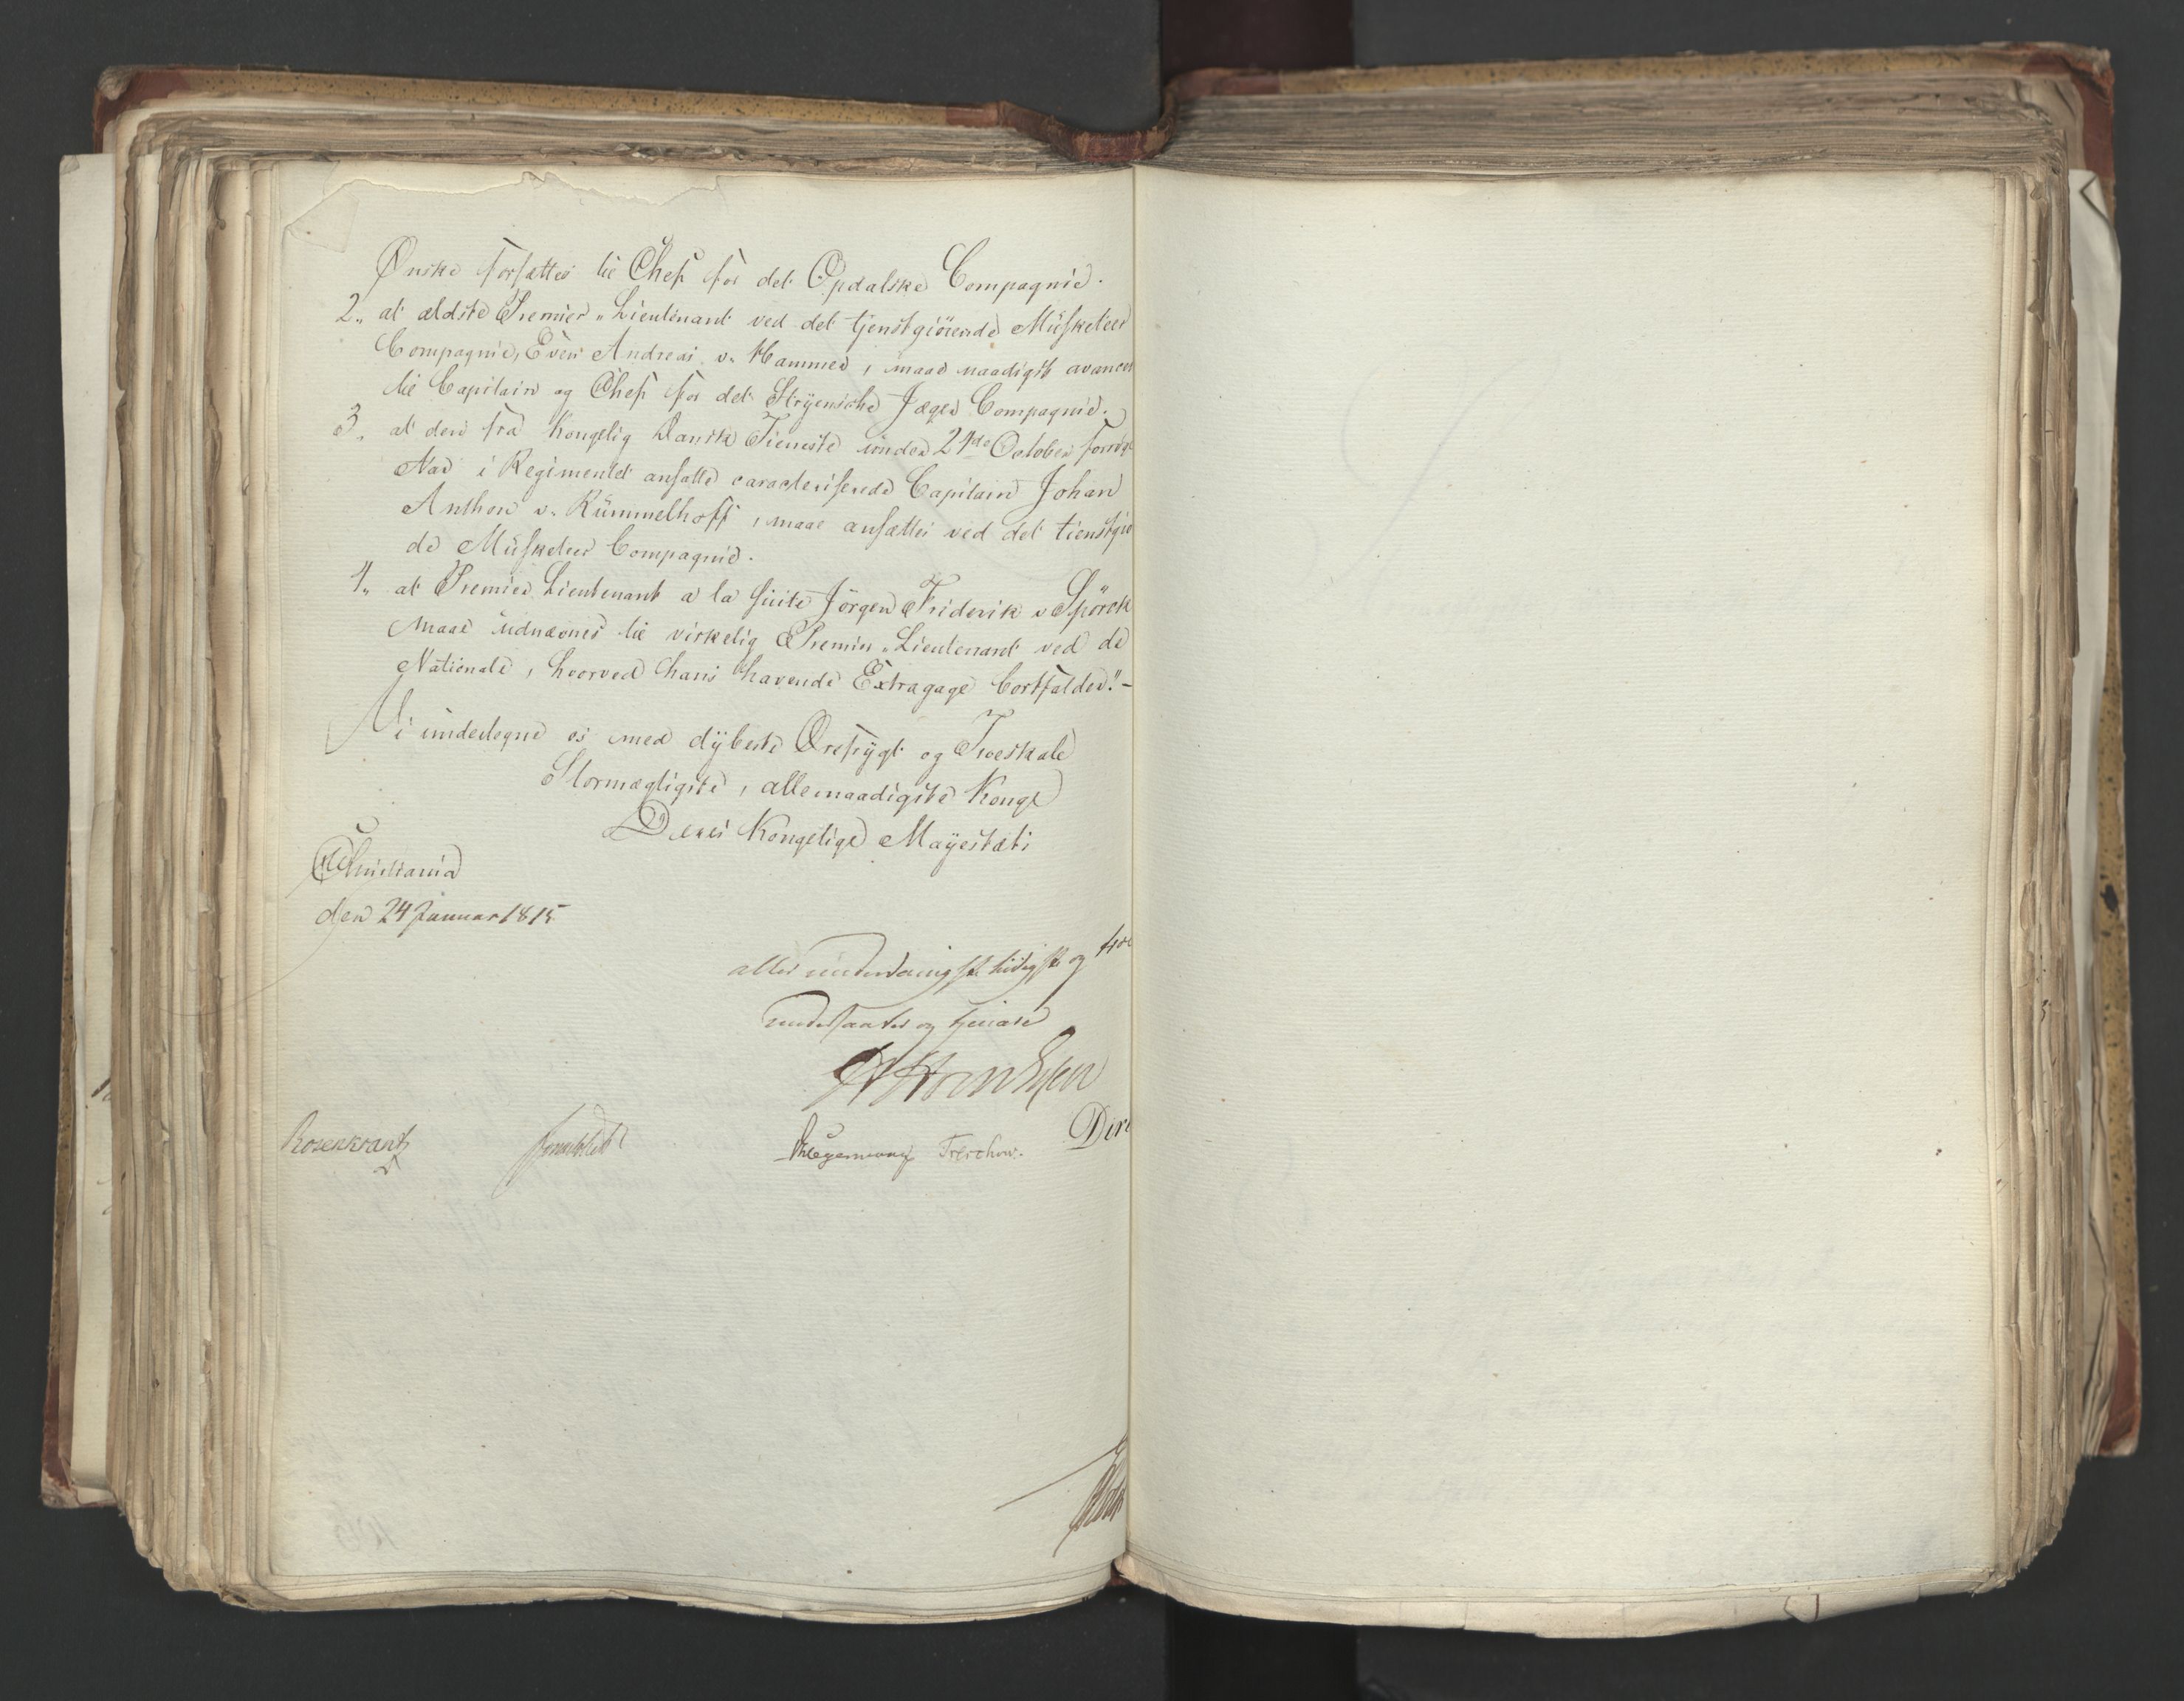 Ønske forsættes til Chef for det Opdalske Compagnie.
2., at ældste Premier-Lieutenant ved det tjenstgiørende Müsketeer
Compagnie, Even Andreas v. Hammer, maae naadigst avancere
til Capitain og Chef for det Stryenske Jæger Compagnie.
3., at den fra Kongelig Dansk Tieneste under 24de October forrige
Aar i Regimentet ansatte caracteriserede Capitain Johan
Anthon v. Rümmelhoff, maae ansættes ved det tienstgiø
de Müsketeer Compagnie.
4., at Premier Lieutenant a la suite Jörgen Friderik v Spörck
maae udnævnes til virkelig Premier-Lieutenant ved de
Nationale, hvorved hans havende Extragage bortfalder." -
Vi undertegne os med dybeste Ærefrygt og Troeskab
Stormægtigste, allernaadigste Konge
Deres Kongelige Mayestæts
Christiania
den 24 Januar 1815
aller underdanigste lydigste og troe
undersaatter og tjenere
Rosenkrantz
Sommerfeldt
Diriks
Hegermann Treschow.